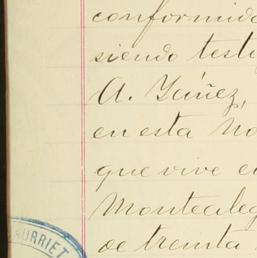 conformida
siendo testi
A. Yáñez,
en esta No
que vive en
Montealeg
de treinta
URRIET